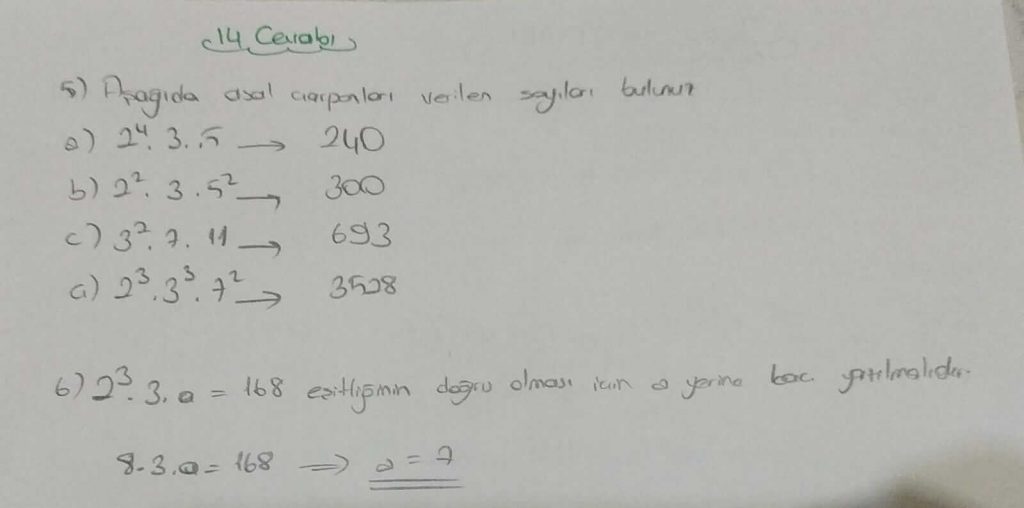 14 Cevabı
5) Aşağıda asal çarpanları verilen sayıları bulunuz
a) 2⁴. 3. 5 → 240
b) 2². 3. 5² → 300
c) 3². 7. 11 → 693
ç) 2³. 3³. 7² → 3528
6) 2³. 3. a = 168 eşitliğinin doğru olması için a yerine kaç yazılmalıdır.
8. 3. a = 168 ⇒ a = 7